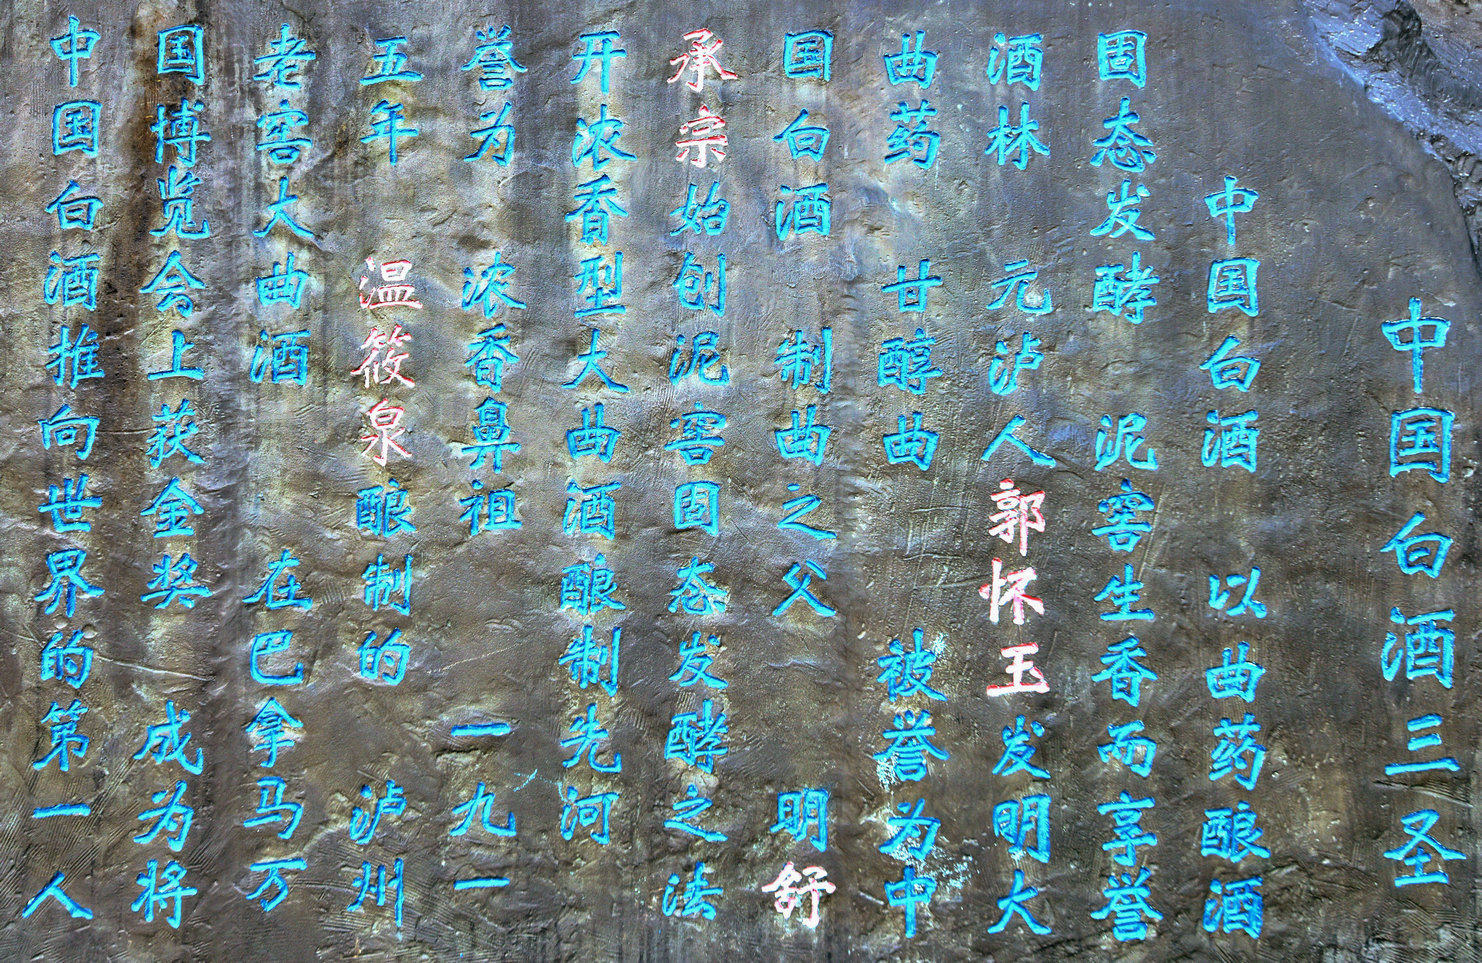 中国白酒三圣
中国白酒 以曲药酿酒
固态发酵 泥窖生香而享誉
酒林 元泸人郭怀玉发明大
曲药 甘醇曲 被誉为中
国白酒 制曲之父 明舒
承宗始创泥窖固态发酵之法
开浓香型大曲酒酿制先河
誉为 浓香鼻祖 一九一
五年 温筱泉酿制的 泸州
老窖大曲酒 在巴拿马万
国博览会上获金奖 成为将
中国白酒推向世界的第一人